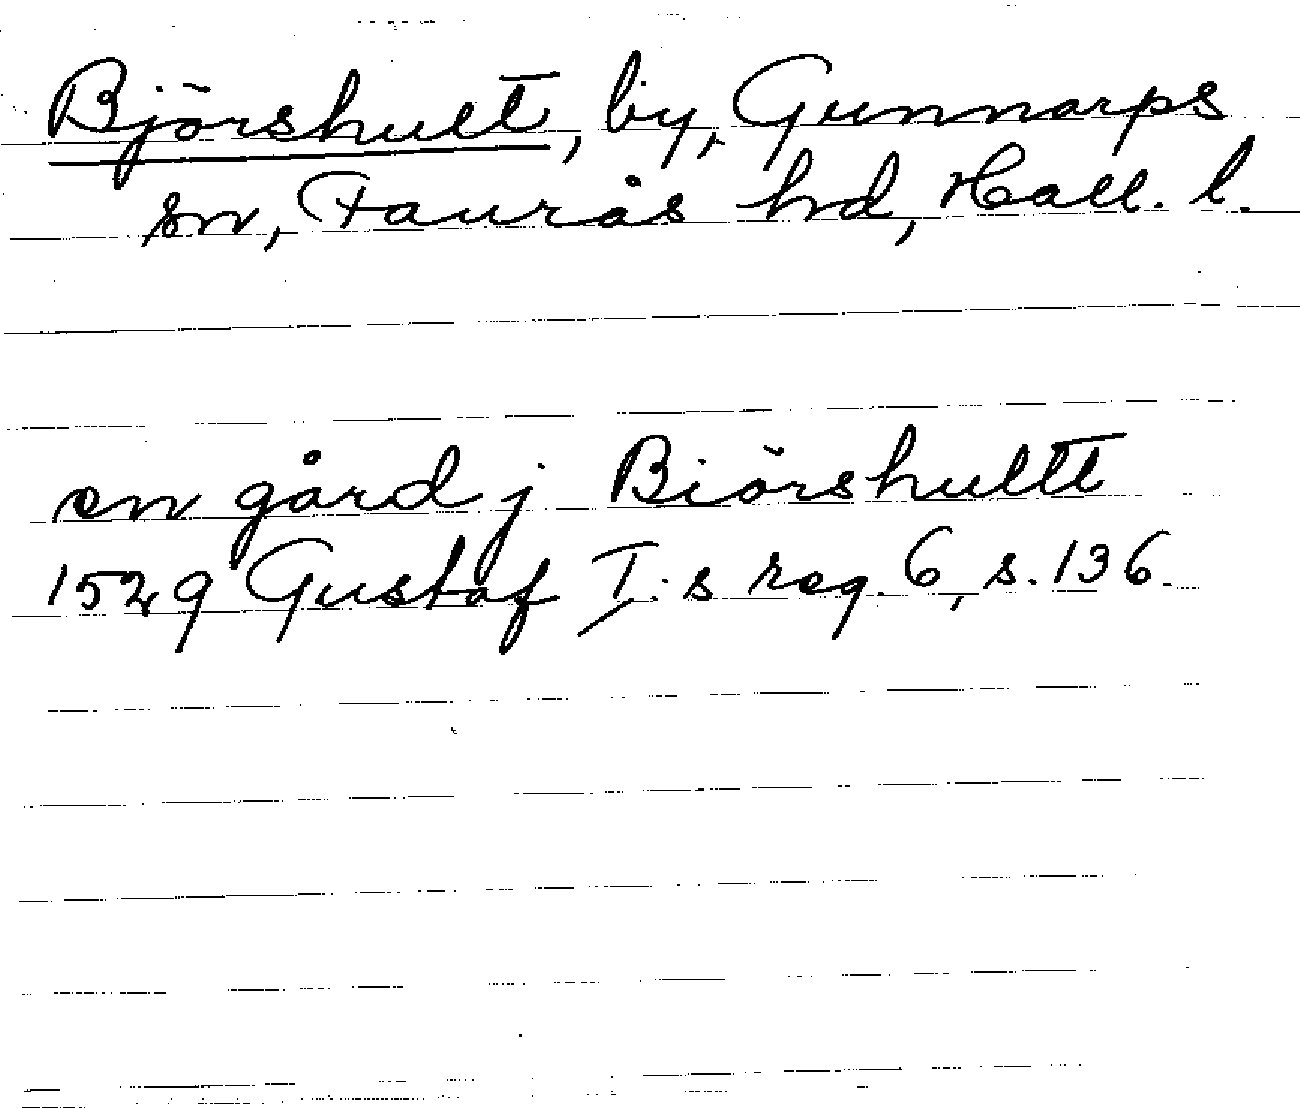 Björshult, by, Gunnarps
sn, Faurås hd, Hall. l.
en gård j Biörshultt
1529 Gustaf I:s reg. 6, s. 136.